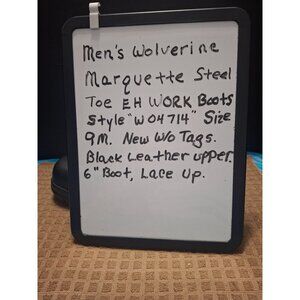 Men's Wolverine
Marquette Steel
Toe EH WORK Boots
Style "W04714" Size
9M. New W/o Tags.
Black Leather upper.
6" Boot, Lace Up.